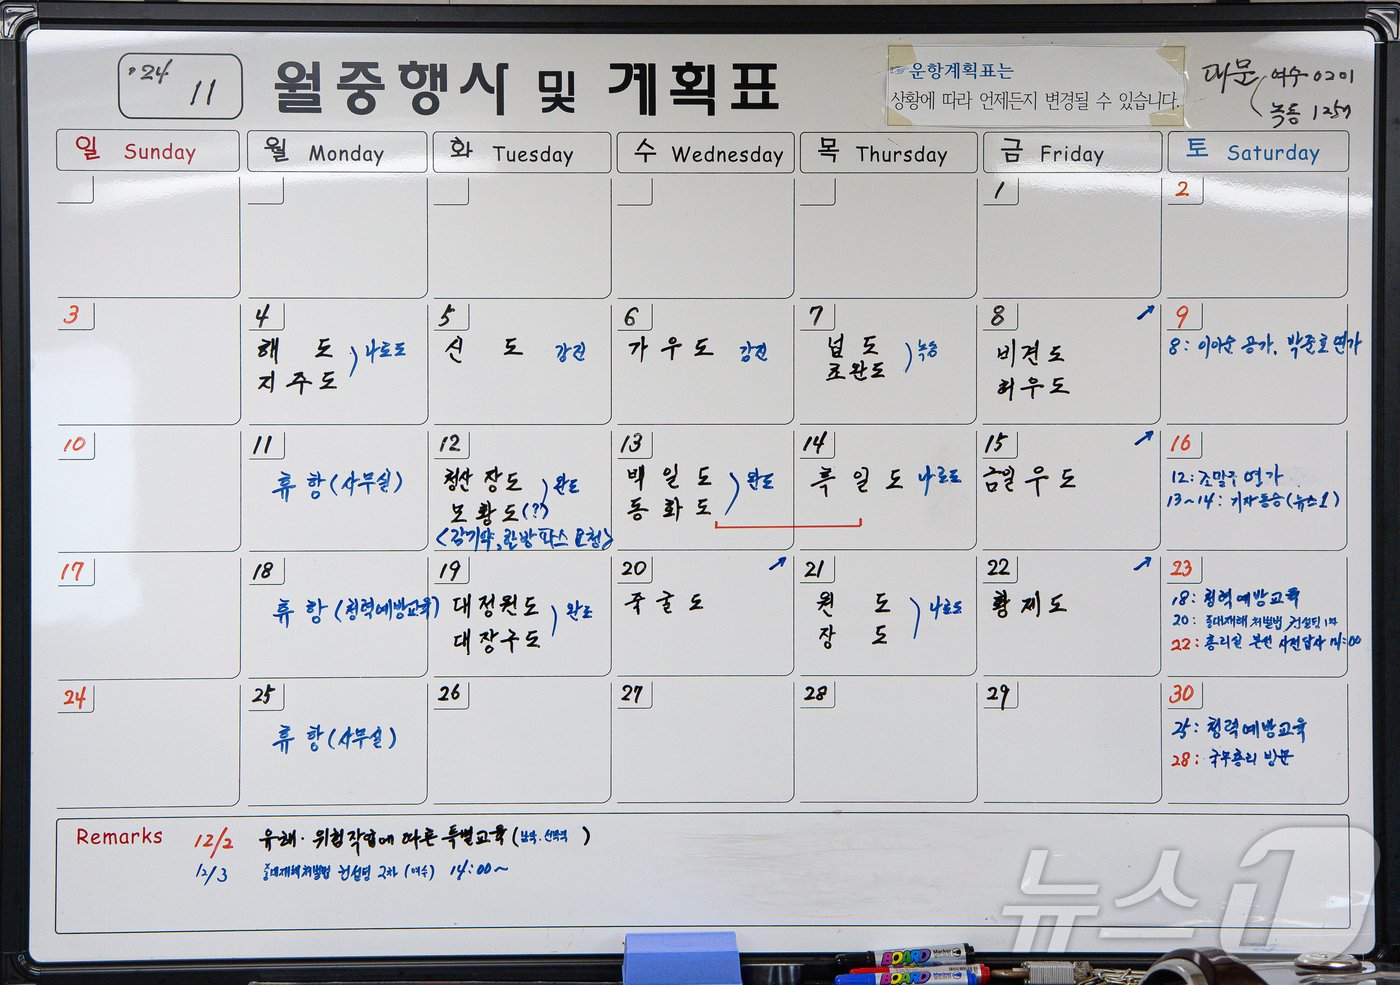 '24 11
월중행사 및 계획표
☞운항계획표는
상황에 따라 언제든지 변경될 수 있습니다.
대문 여수 0201
녹동
일 Sunday
월 Monday
화 Tuesday
수 Wednesday
목 Thursday
금 Friday
토 Saturday
1
2
3
4
해 도
지 주 도
나로도
5
신 도 강진
6
가 우 도 강진
7
넙 도
로완도
녹동
8
비견도
허우도
9
8: 이아순 공가, 박준호 연가
10
11
휴항(사무실)
12
청산 장도
모황도(?)
완도
<감기약, 한방파스 요청>
13
백 일 도
동 화 도
완도
14
흑 일 도 나로도
15
금일 우 도
16
12: 조말주 연가
13~14: 기자동승(뉴스1)
17
18
휴항(청력예방교육)
19
대정원도
대장구도
완도
20
죽굴도
21
원 도
장 도
나로도
22
황제도
23
18: 청력예방교육
20: 중대재해처벌법 컨설팅 1차
22: 총리실 본선 사전답사 14:00
24
25
휴항(사무실)
26
27
28
29
30
25: 청력예방교육
28: 국무총리 방문
Remarks
12/2 유해·위험작업에 따른 특별교육( )
12/3 중대재해처벌법 컨설팅 2차 (여수) 14:00~
BOARD Marker
BOARD
뉴스1